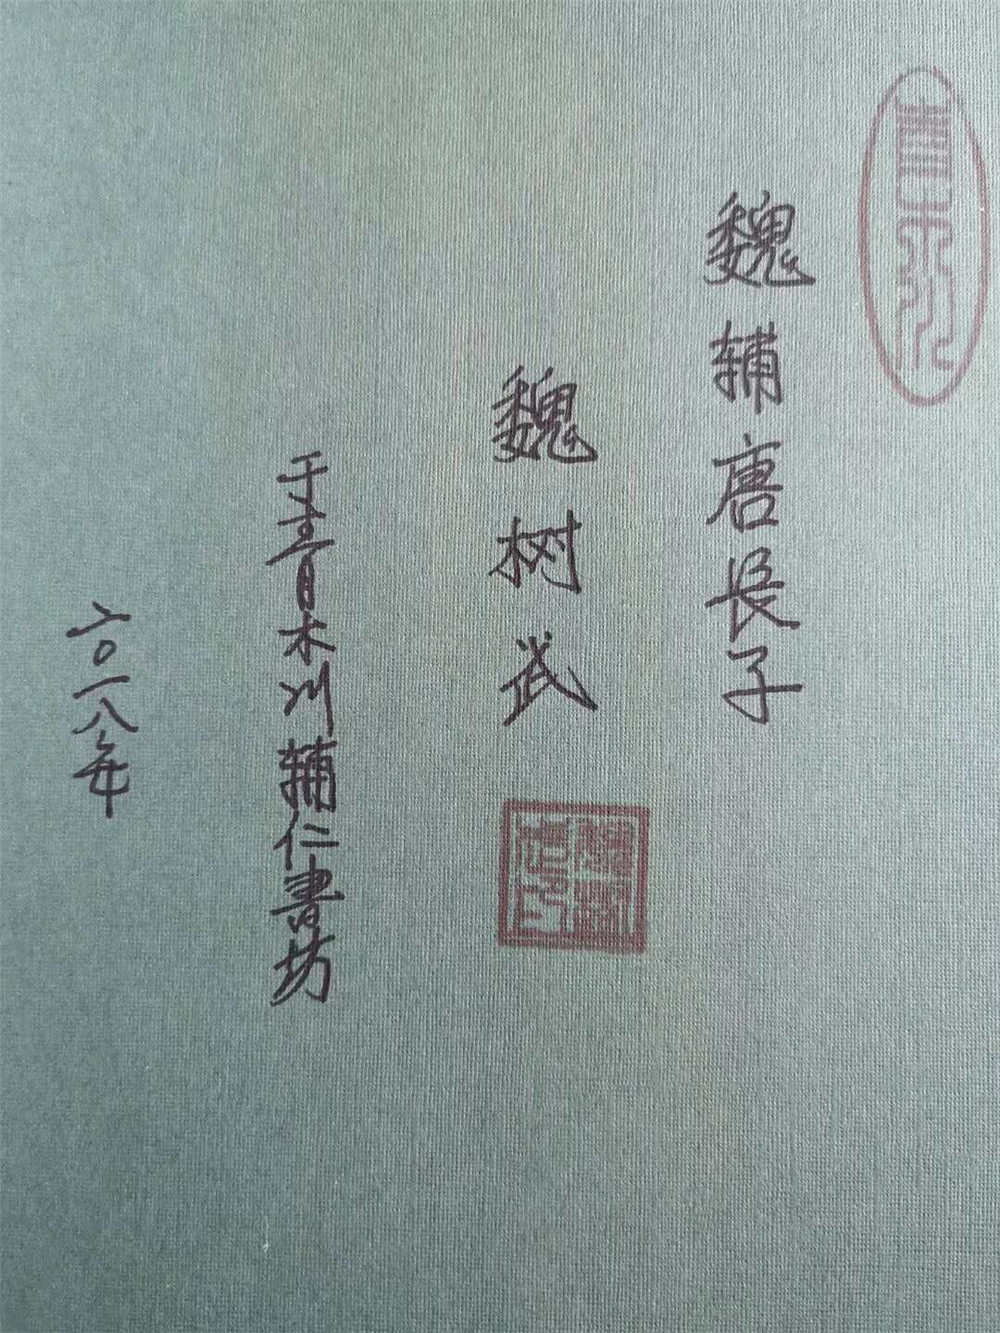 青木川
魏辅唐長子
魏树武
于青木川辅仁書坊
二〇一八年